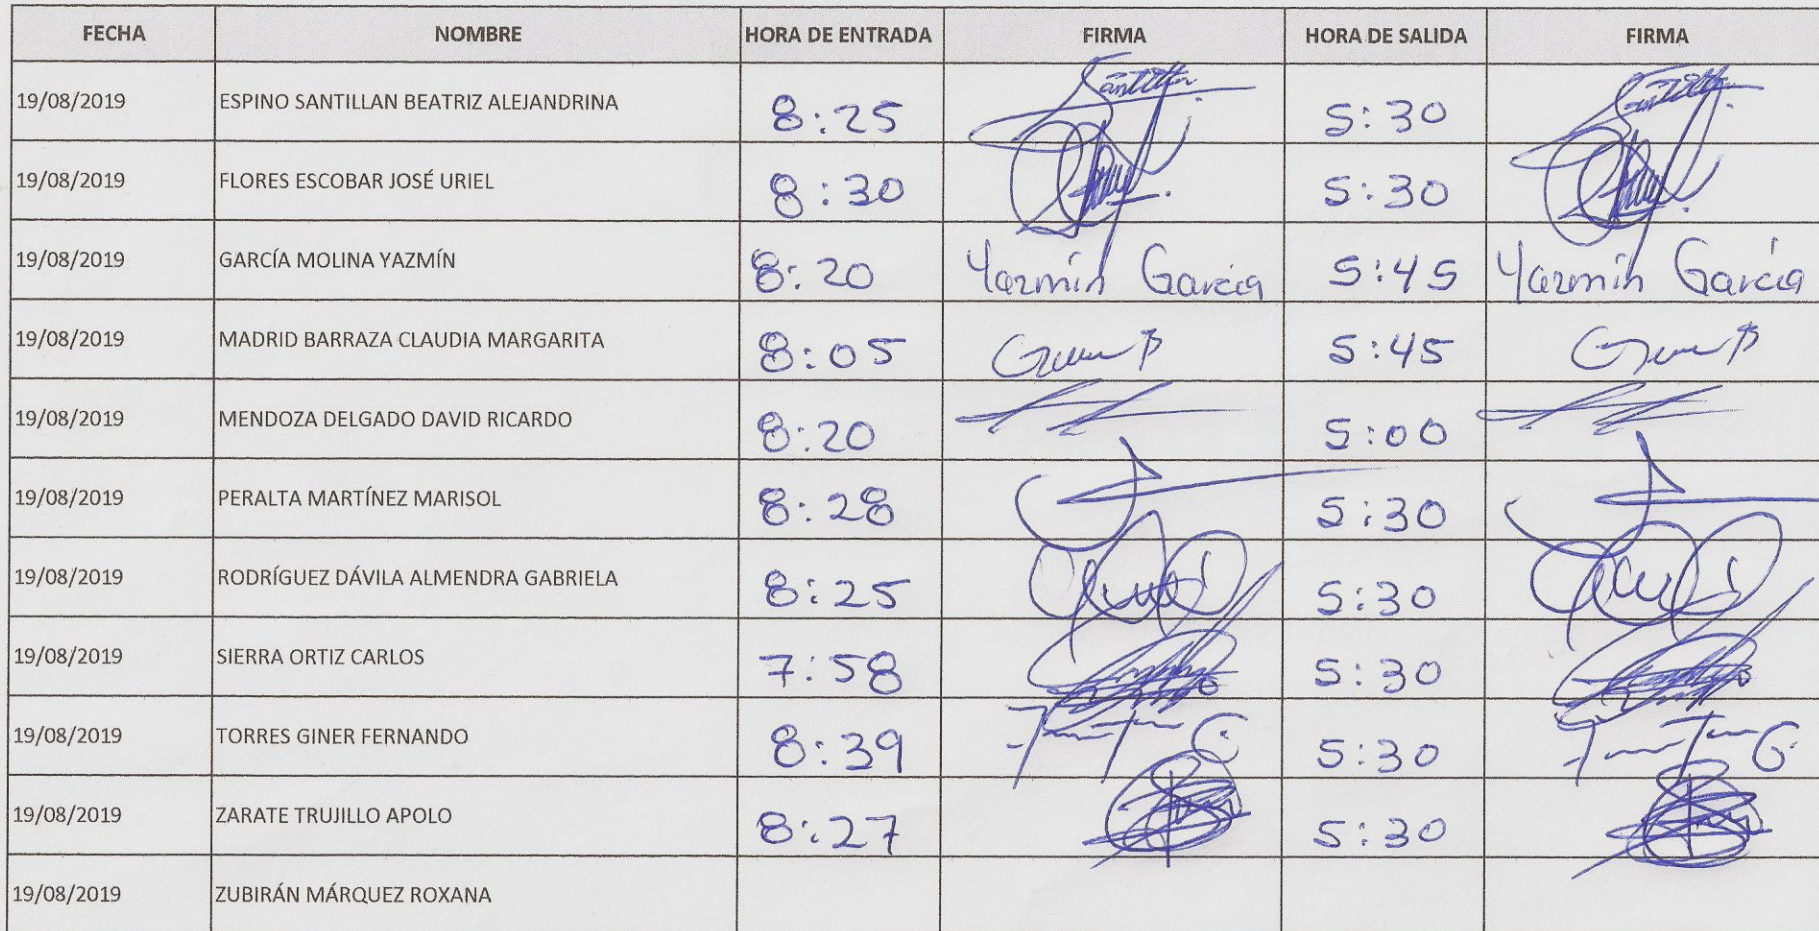 FECHA NOMBRE HORA DE ENTRADA FIRMA HORA DE SALIDA FIRMA
19/08/2019 ESPINO SANTILLAN BEATRIZ ALEJANDRINA 8:25 Santillan 5:30 Santillan
19/08/2019 FLORES ESCOBAR JOSÉ URIEL 8:30 5:30
19/08/2019 GARCÍA MOLINA YAZMÍN 8:20 Yazmín García 5:45 Yazmín García
19/08/2019 MADRID BARRAZA CLAUDIA MARGARITA 8:05 5:45
19/08/2019 MENDOZA DELGADO DAVID RICARDO 8:20 5:00
19/08/2019 PERALTA MARTÍNEZ MARISOL 8:28 5:30
19/08/2019 RODRÍGUEZ DÁVILA ALMENDRA GABRIELA 8:25 5:30
19/08/2019 SIERRA ORTIZ CARLOS 7:58 5:30
19/08/2019 TORRES GINER FERNANDO 8:39 5:30
19/08/2019 ZARATE TRUJILLO APOLO 8:27 5:30
19/08/2019 ZUBIRÁN MÁRQUEZ ROXANA